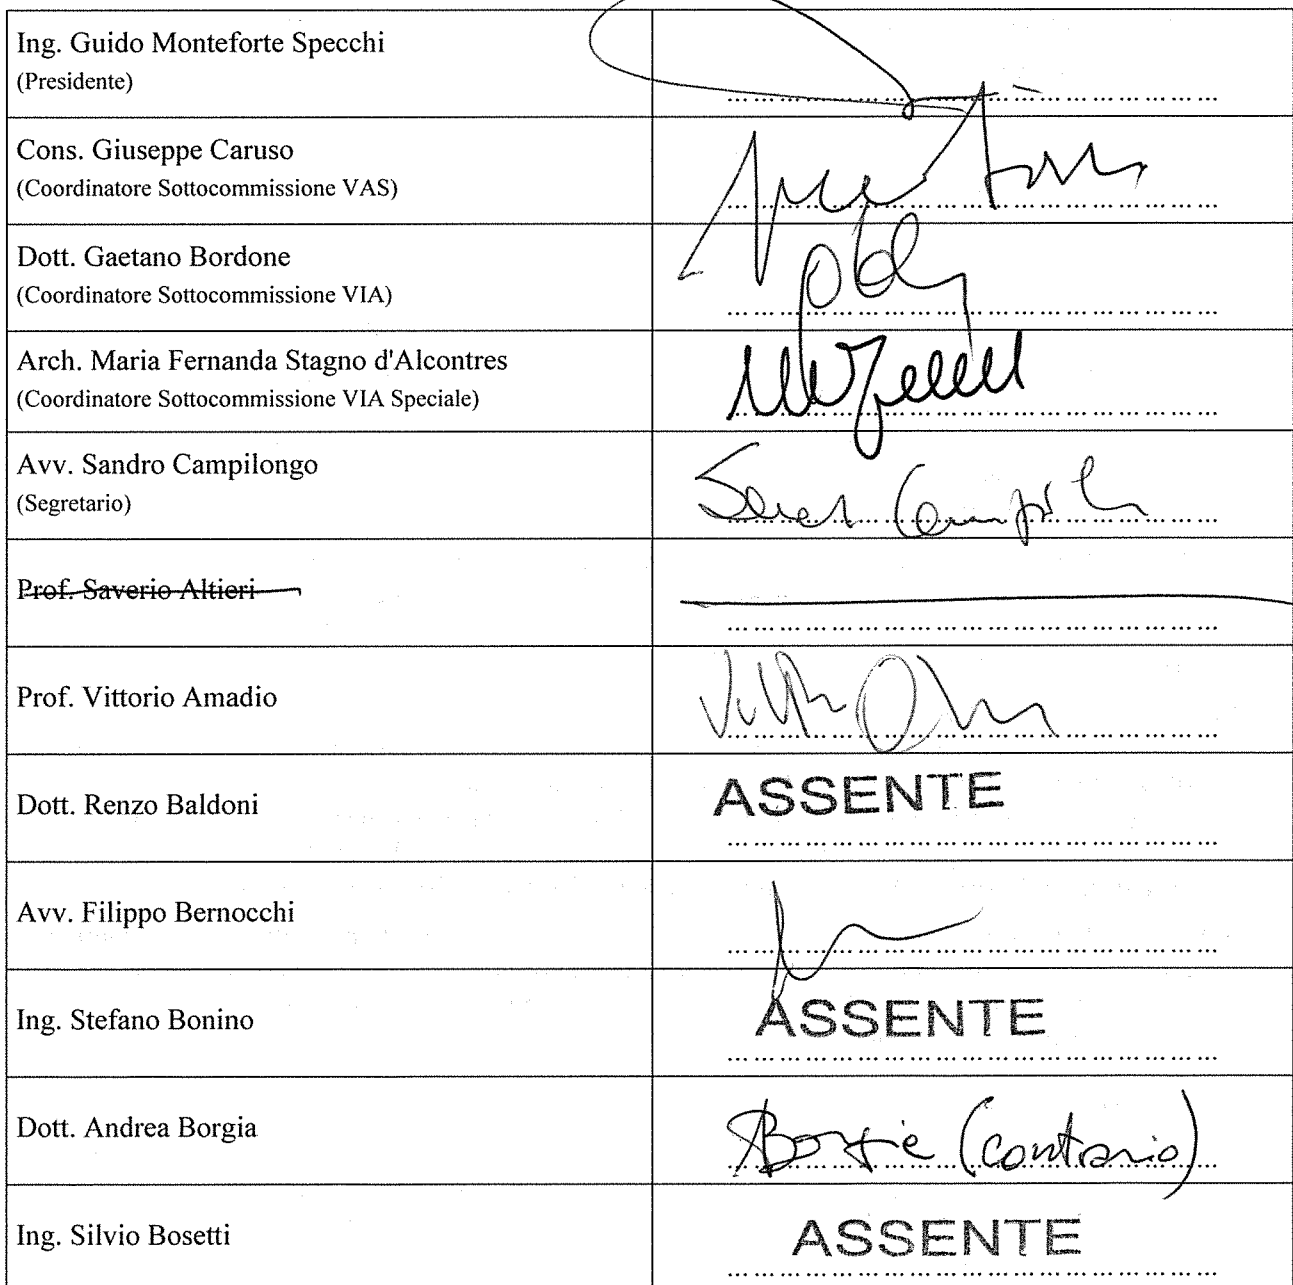 Ing. Guido Monteforte Specchi
(Presidente)
Cons. Giuseppe Caruso
(Coordinatore Sottocommissione VAS)
Dott. Gaetano Bordone
(Coordinatore Sottocommissione VIA)
Arch. Maria Fernanda Stagno d'Alcontres
(Coordinatore Sottocommissione VIA Speciale)
Avv. Sandro Campilongo
(Segretario)
Prof. Saverio Altieri
Prof. Vittorio Amadio
Dott. Renzo Baldoni
ASSENTE
Avv. Filippo Bernocchi
Ing. Stefano Bonino
ASSENTE
Dott. Andrea Borgia
(contrario)
Ing. Silvio Bosetti
ASSENTE